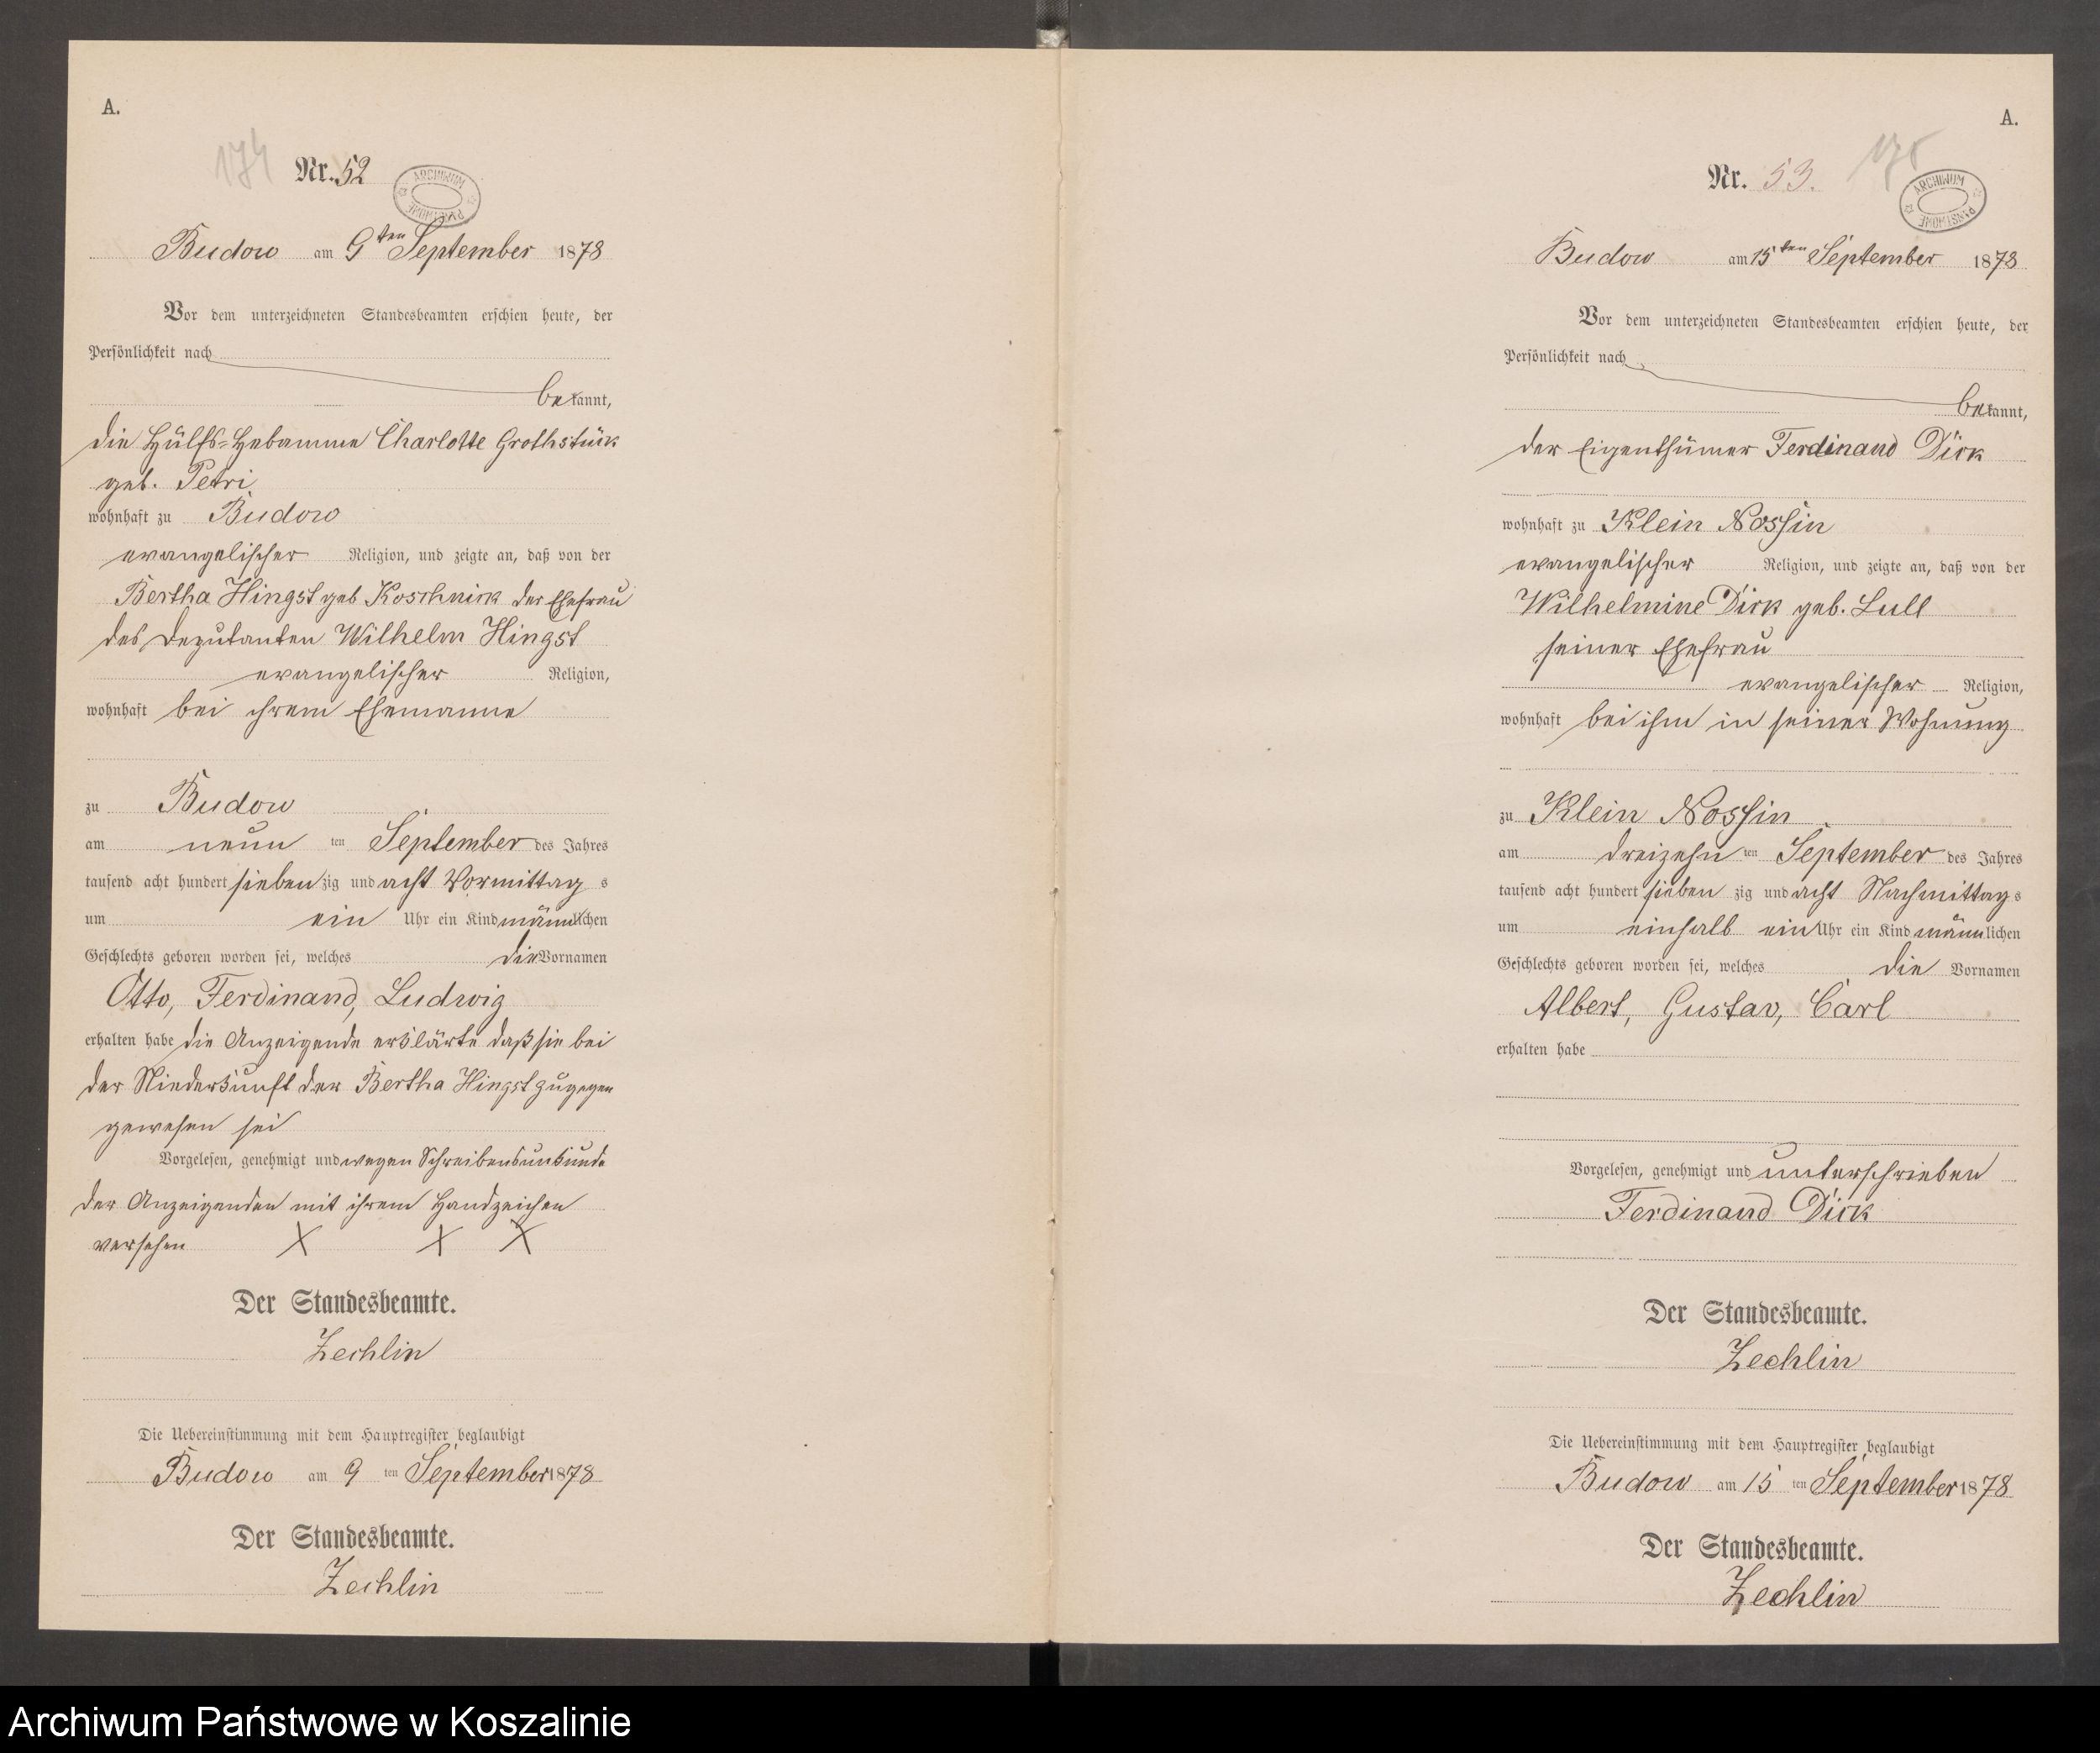 A.
174
Nr. 52
ARCHIWUM PAŃSTWOWE
Budow am 9ten September 1878
Vor dem unterzeichneten Standesbeamten erschien heute, der
Persönlichkeit nach
bekannt,
die Hülfs-Hebamme Charlotte Grothstück
geb. Petri
wohnhaft zu Budow
evangelischer Religion, und zeigte an, daß von der
Bertha Hingst geb Koschnick der Ehefrau
des Deputanten Wilhelm Hingst
evangelischer Religion,
wohnhaft bei ihrem Ehemanne
zu Budow
am neun ten September des Jahres
tausend acht hundert sieben zig und acht Vormittag s
um ein Uhr ein Kind männlichen
Geschlechts geboren worden sei, welches die Vornamen
Otto, Ferdinand, Ludwig
erhalten habe die Anzeigende erklärte daß sie bei
der Niederkunft der Bertha Hingst zugegen
gewesen sei
Vorgelesen, genehmigt und wegen Schreibensunkunde
der Anzeigenden mit ihrem Handzeichen
versehen X X X
Der Standesbeamte.
Zechlin
Die Uebereinstimmung mit dem Hauptregister beglaubigt
Budow am 9 ten September 1878
Der Standesbeamte.
Zechlin
A.
175
Nr. 53.
ARCHIWUM PAŃSTWOWE
Budow am 15ten September 1878
Vor dem unterzeichneten Standesbeamten erschien heute, der
Persönlichkeit nach
bekannt,
der Eigenthümer Ferdinand Dirk
wohnhaft zu Klein Nossin
evangelischer Religion, und zeigte an, daß von der
Wilhelmine Dirk geb. Lull
seiner Ehefrau
evangelischer Religion,
wohnhaft bei ihm in seiner Wohnung
zu Klein Nossin
am dreizehn ten September des Jahres
tausend acht hundert sieben zig und acht Nachmittag s
um einhalb ein Uhr ein Kind männlichen
Geschlechts geboren worden sei, welches die Vornamen
Albert, Gustav, Carl
erhalten habe
Vorgelesen, genehmigt und unterschrieben
Ferdinand Dirk
Der Standesbeamte.
Zechlin
Die Uebereinstimmung mit dem Hauptregister beglaubigt
Budow am 15 ten September 1878
Der Standesbeamte.
Zechlin
Archiwum Państwowe w Koszalinie